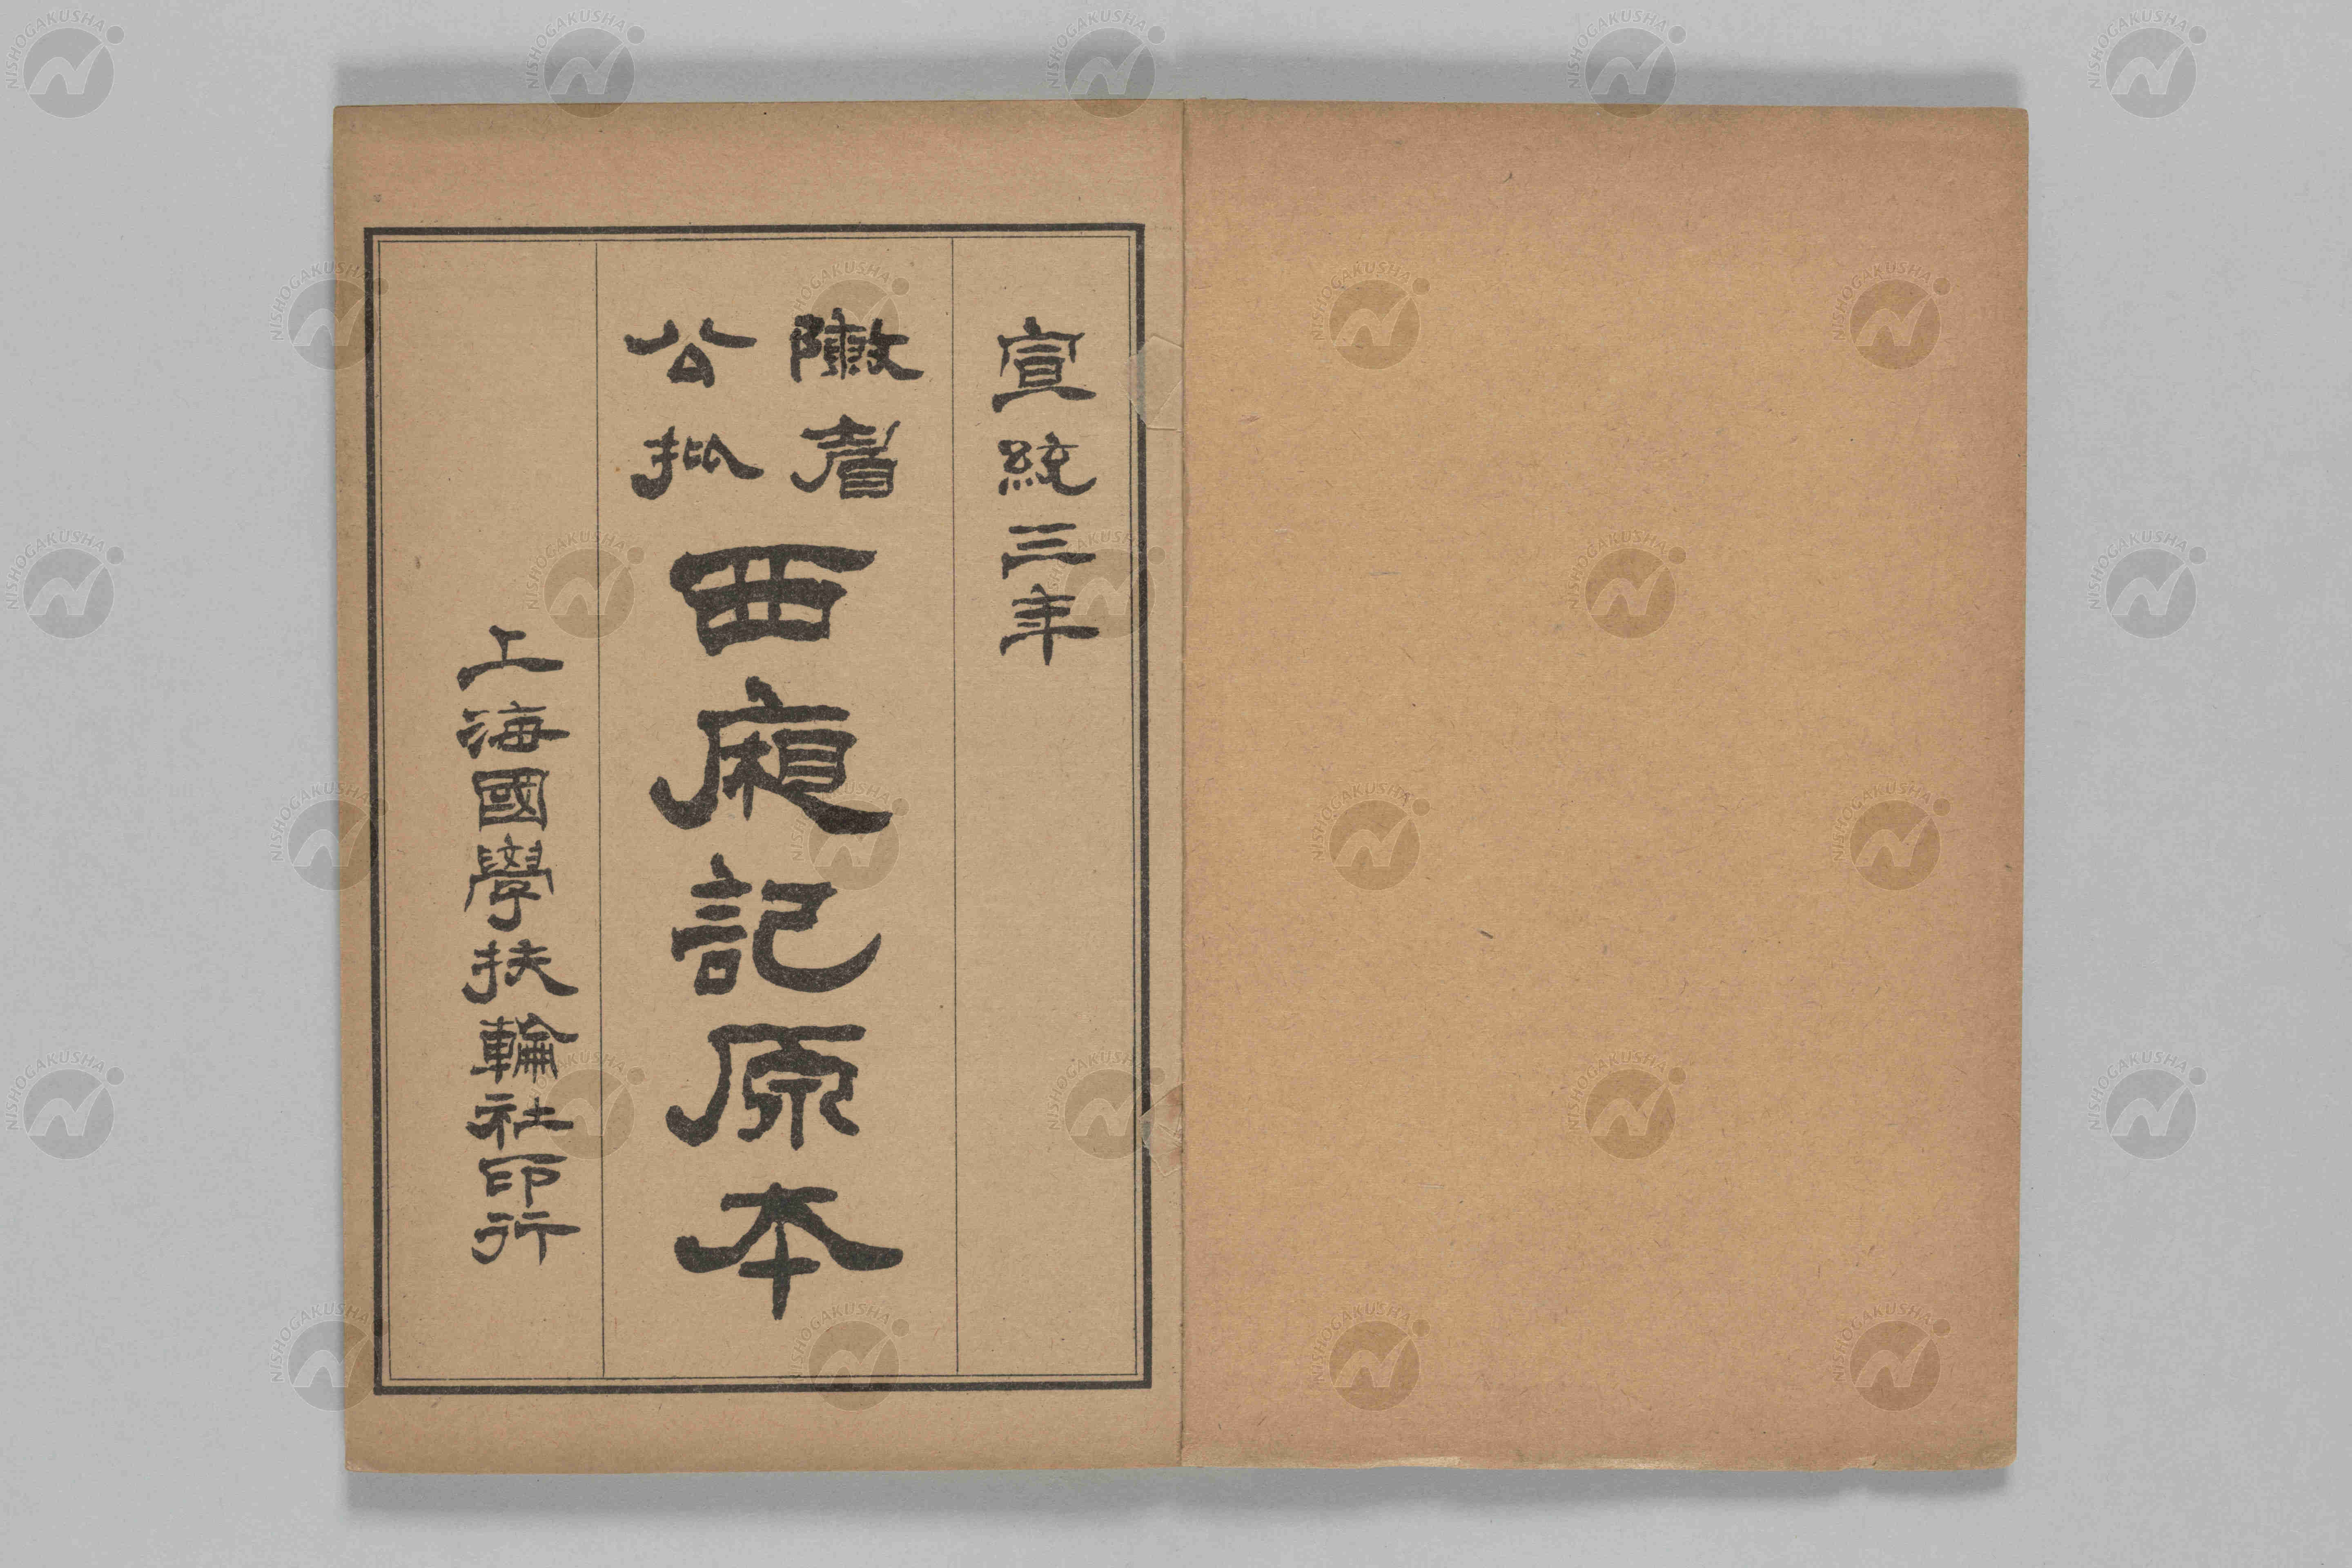 宣統三年
敶眉
公批
西廂記原本
上海國學扶輪社印行
NISHOGAKUSHA